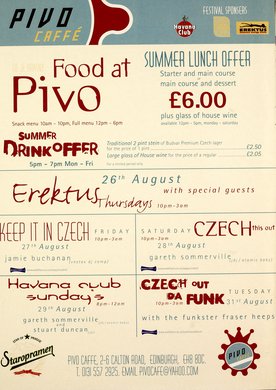 PIVO
CAFFÉ
FESTIVAL SPONSERS
Havana
Club
EREKTUS
Food at
Pivo
Snack menu 10am - 10pm, Full menu 12pm - 6pm
SUMMER LUNCH OFFER
Starter and main course
or
main course and dessert
£6.00
plus glass of house wine
available 12pm - 6pm, monday - saturday
SUMMER
DRINK OFFER
5pm - 7pm Mon - Fri
Traditional 2 pint stein of Budvar Premium Czech lager
for the price of 1 pint £2.50
Large glass of House wine for the price of a regular £2.05
for a limited period only
26th August
Erektus
Thursdays
with special guests
10pm-3am
KEEP IT IN CZECH
FRIDAY
10pm-3am
27th August
jamie buchanan
SATURDAY
10pm-3am
CZECH this out
28th August
gareth sommerville
Havana club
sundays
6pm-12am
29th August
gareth sommerville
and
stuart duncan
CZECH OUT
DA FUNK
TUESDAY
10pm-3am
31st August
with the funkster fraser heeps
Staropramen
PIVO CAFFE, 2-6 CALTON ROAD, EDINBURGH, EH8 8DC.
T. 0131 557 2925, EMAIL PIVOCAFE@YAHOO.COM
PIVO